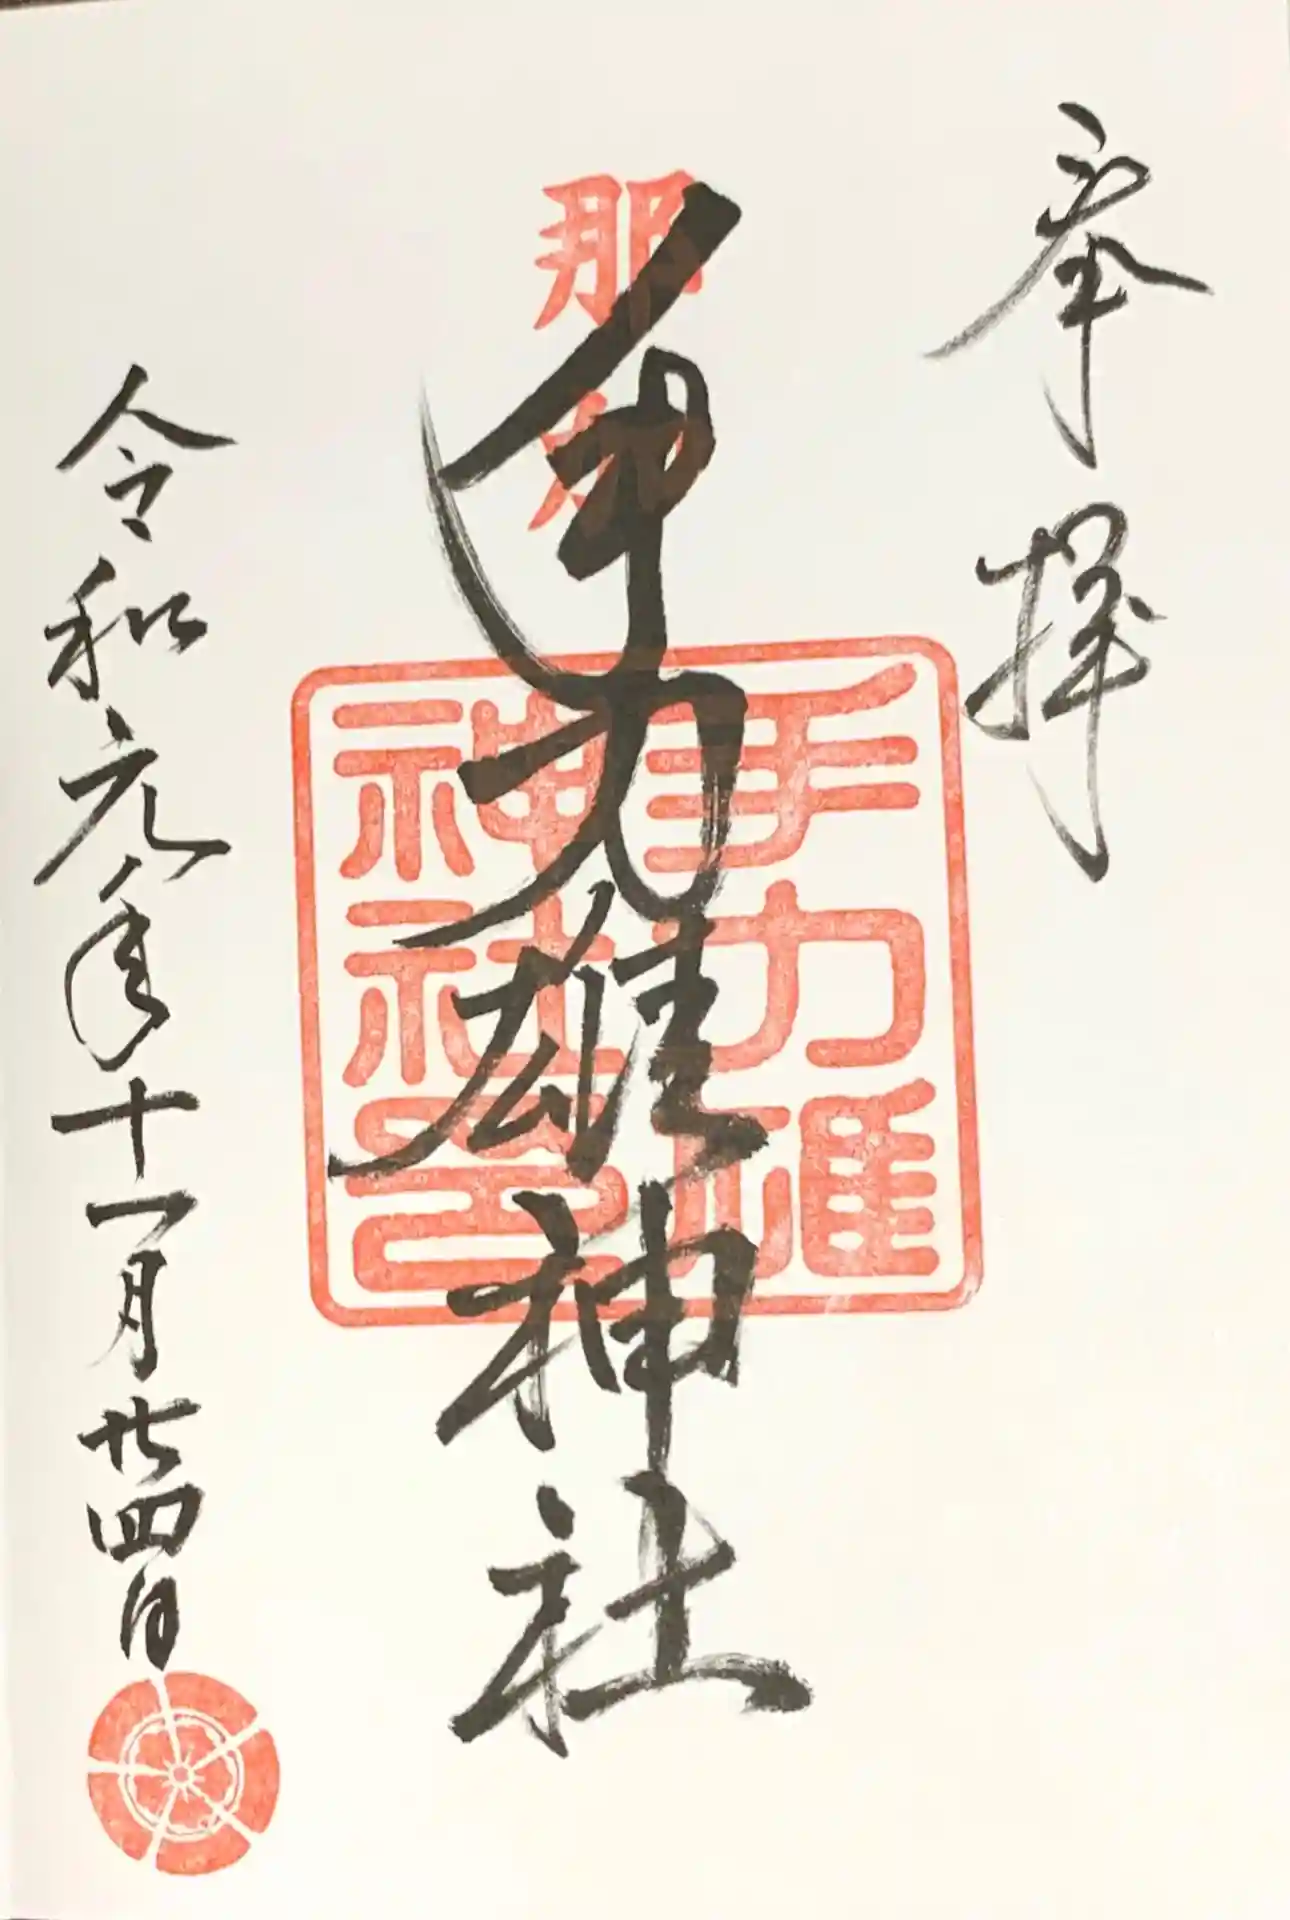 奉拝
那加
手力雄神社
手力雄
神社印
令和元年十一月廿四日